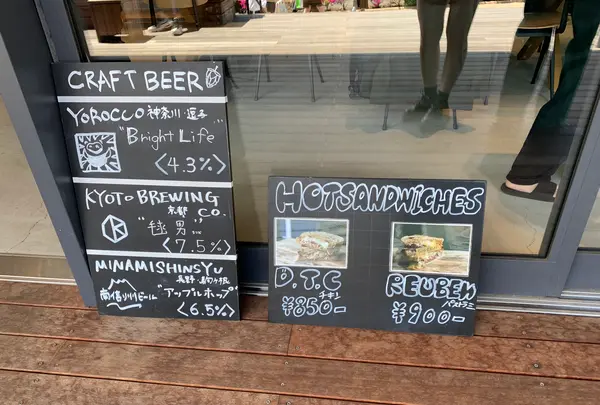 CRAFT BEER
YOROCCO 神奈川・逗子
"Bright Life"
<4.3%>
KYOTO BREWING
京都 CO.
"毬男"
<7.5%>
MINAMISHINSYU
長野・駒ヶ根
南信州ビール "アップルホップ"
<6.5%>
HOTSANDWICHES
D.T.C
チキン
¥850-
REUBEN
パストラミ
¥900-